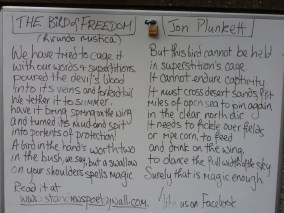 THE BIRD of FREEDOM
(Hirundo rustica)
We have tried to cage it
with our words & superstitions
poured the devil's blood
into its veins and forked tail
We tether it to summer,
have it bring spring on the wing
and turned its mud and spit
into portents of protection.
A bird in the hand's worth two
in the bush, we say, but a swallow
on your shoulder spells magic.
Read it at
Jon Plunkett
But this bird cannot be held
in superstition's cage.
It cannot endure captivity
It must cross desert sands, flit
miles of open sea to pin again
in the clear north air
It needs to tickle over fields
of ripe corn, to feed
and drink on the wing,
to dance the full width of the sky
Surely that is magic enough.
like us on Facebook